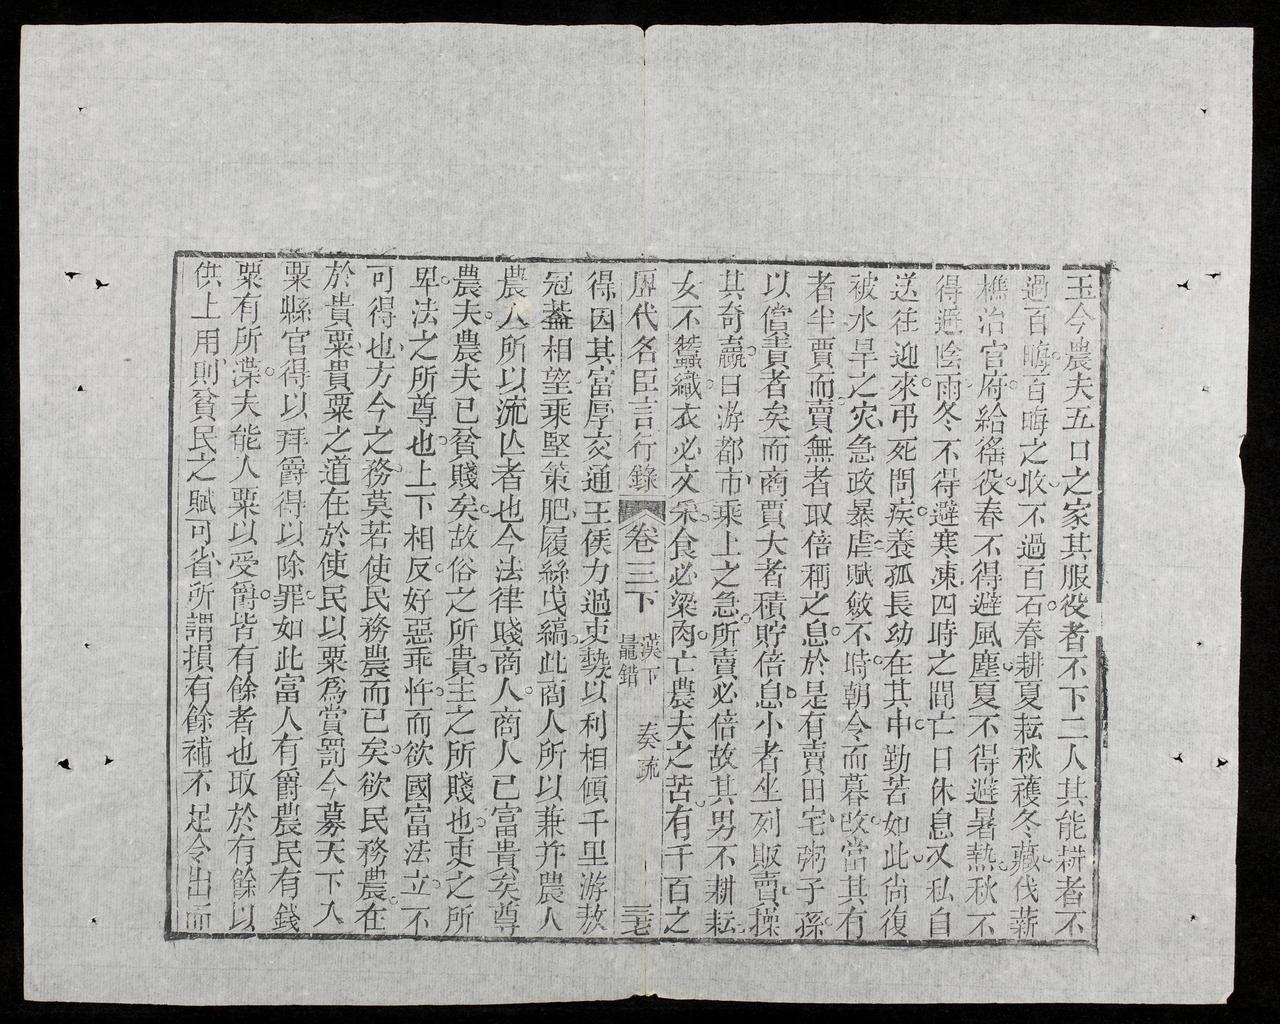 玉今農夫五口之家其服役者不下二人其能耕者不
過百畮百畮之收不過百石春耕夏耘秋穫冬藏伐薪
樵治官府給徭役春不得避風塵夏不得避暑熱秋不
得避陰雨冬不得避寒凍四時之間亡日休息又私自
送往迎來吊死問疾養孤長幼在其中勤苦如此尙復
被水旱之灾急政暴虐賦斂不時朝令而暮改當其有
者半賈而賣無者取倍稱之息於是有賣田宅粥子孫
以償責者矣而商賈大者積貯倍息小者坐列販賣操
其奇贏日游都市乘上之急所賣必倍故其男不耕耘
女不蠶織衣必文采食必粱肉亡農夫之苦有千百之
歷代名臣言行錄 卷三下 漢下 鼂錯 奏疏 三七
得因其富厚交通王侯力過吏勢以利相傾千里游敖
冠蓋相望乘堅策肥履絲曳縞此商人所以兼并農人
農人所以流亾者也今法律賤商人商人已富貴矣尊
農夫農夫已貧賤矣故俗之所貴主之所賤也吏之所
卑法之所尊也上下相反好惡乖忤而欲國富法立不
可得也方今之務莫若使民務農而已矣欲民務農在
於貴粟貴粟之道在於使民以粟爲賞罰今募天下入
粟縣官得以拜爵得以除罪如此富人有爵農民有錢
粟有所渫夫能入粟以受爵皆有餘者也取於有餘以
供上用則貧民之賦可省所謂損有餘補不足令出而